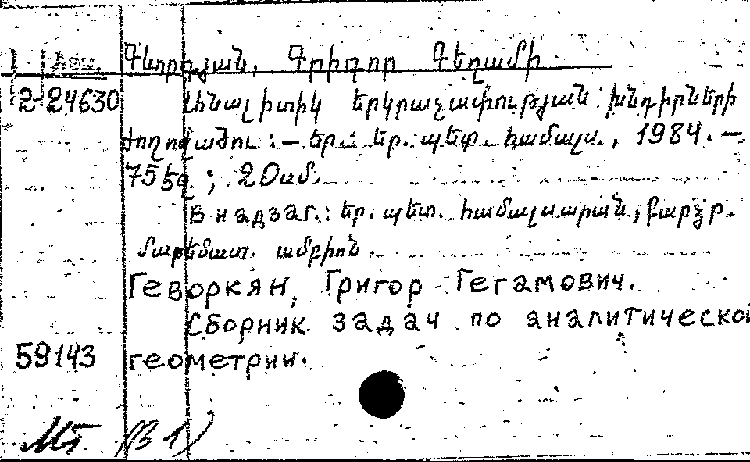 Գևորգյան, Գրիգոր Գեղամի
2-24630 Անալիտիկ երկրաչափության խնդիրների
ժողովածու :— Եր.: Եր. պետ. համալս., 1984.—
75 էջ ; 20 սմ.
В надзаг.: Եր. պետ. համալսարան, բարձր.
մաթեմատ. ամբիոն
Геворкян, Григор Гегамович.
Сборник задач по аналитической
59143 геометрии.
(В 1)